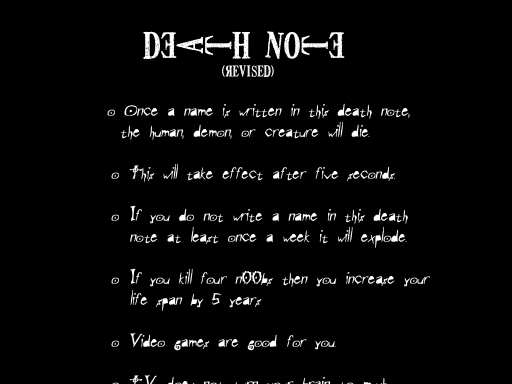 DEATH NOTE
(REVISED)
Once a name is written in this death note,
the human, demon, or creature will die.
This will take effect after five seconds.
If you do not write a name in this death
note at least once a week it will explode.
If you kill four n00bs then you increase your
life span by 5 years
Video games are good for you.
TV does not turn your brain to